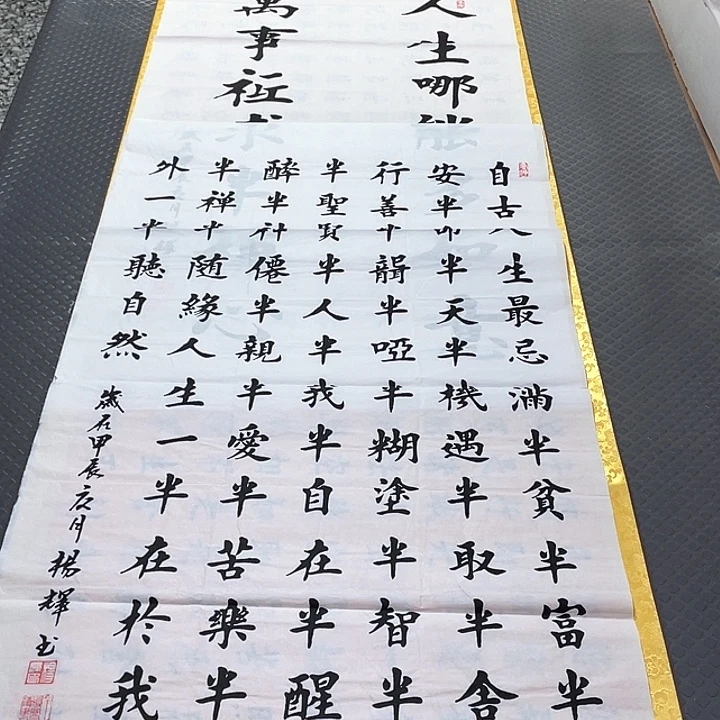 人生哪能
萬事祇求
自古人生最忌滿半貧半富半
安半命半天半機遇半取半舍
行善半聾半啞半糊塗半智半
半聖賢半人半我半自在半醒
醉半神僊半親半愛半苦樂半
半禅半随緣人生一半在於我
外一半聽自然
歲在甲辰夏月楊輝书